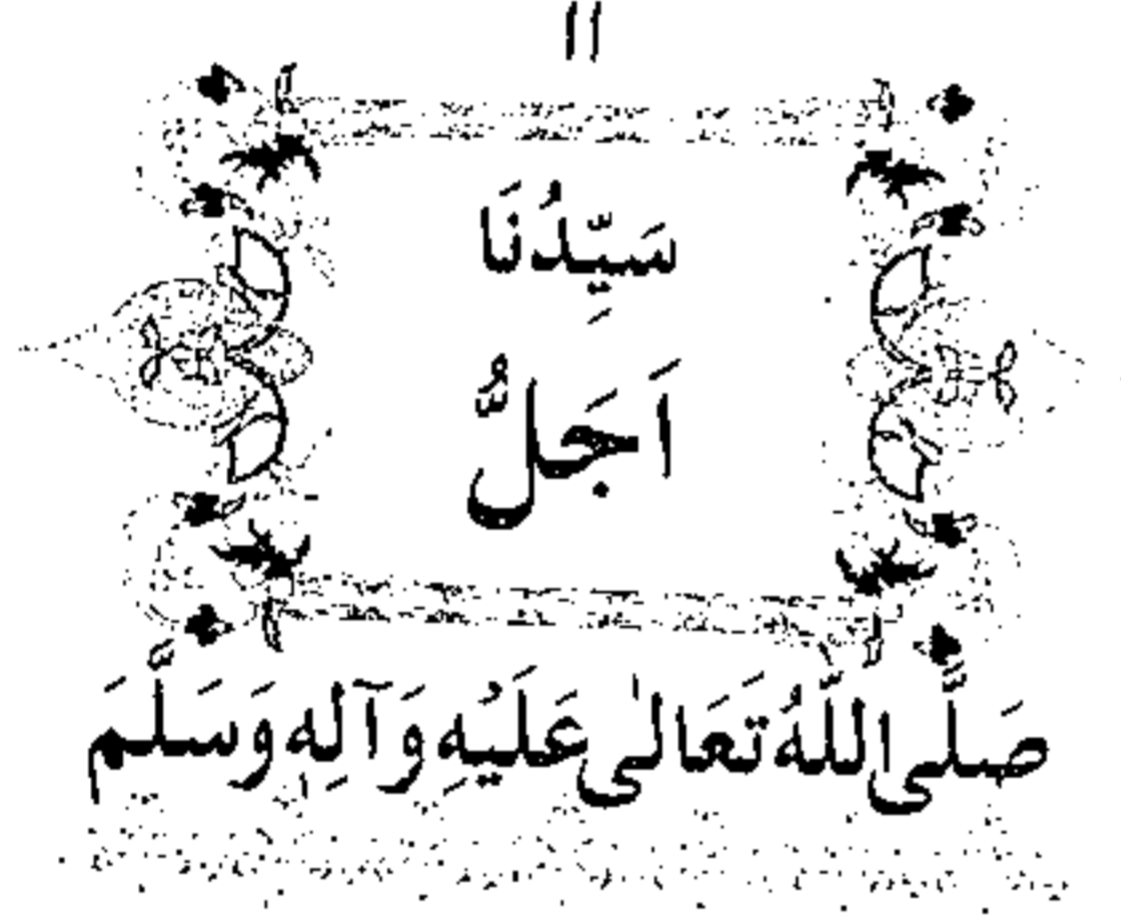 ١١
سَيِّدُنَا
اَجَلُّ
صَلَّى اللّٰهُ تَعَالٰى عَلَيْهِ وَآلِهٖ وَسَلَّمَ